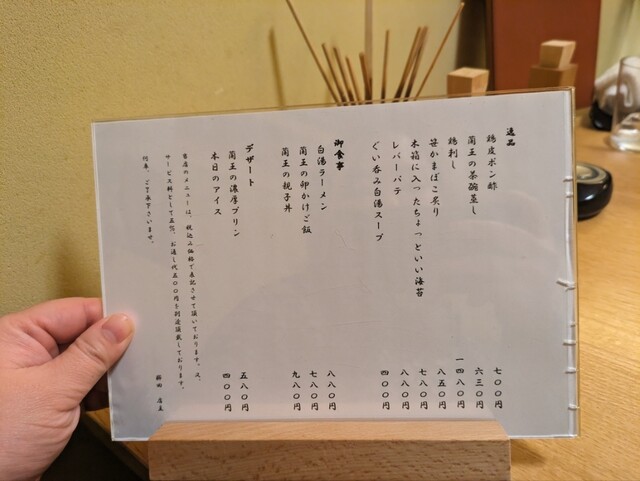 逸品
鶏皮ポン酢 七〇〇円
蘭王の茶碗蒸し 六三〇円
鶏刺し 一四八〇円
笹かまぼこ炙り 八五〇円
木箱に入ったちょっといい海苔 七八〇円
レバーパテ 八八〇円
ぐい呑み白湯スープ 四〇〇円
御食事
白湯ラーメン 八八〇円
蘭王の卵かけご飯 七八〇円
蘭王の親子丼 九八〇円
デザート
蘭王の濃厚プリン 五八〇円
本日のアイス 四〇〇円
当店のメニューは、税込み価格で表記させて頂いております。又、
サービス料として五%、お通し代五〇〇円を別途頂戴しております。
何卒、ご了承下さいませ。
店主